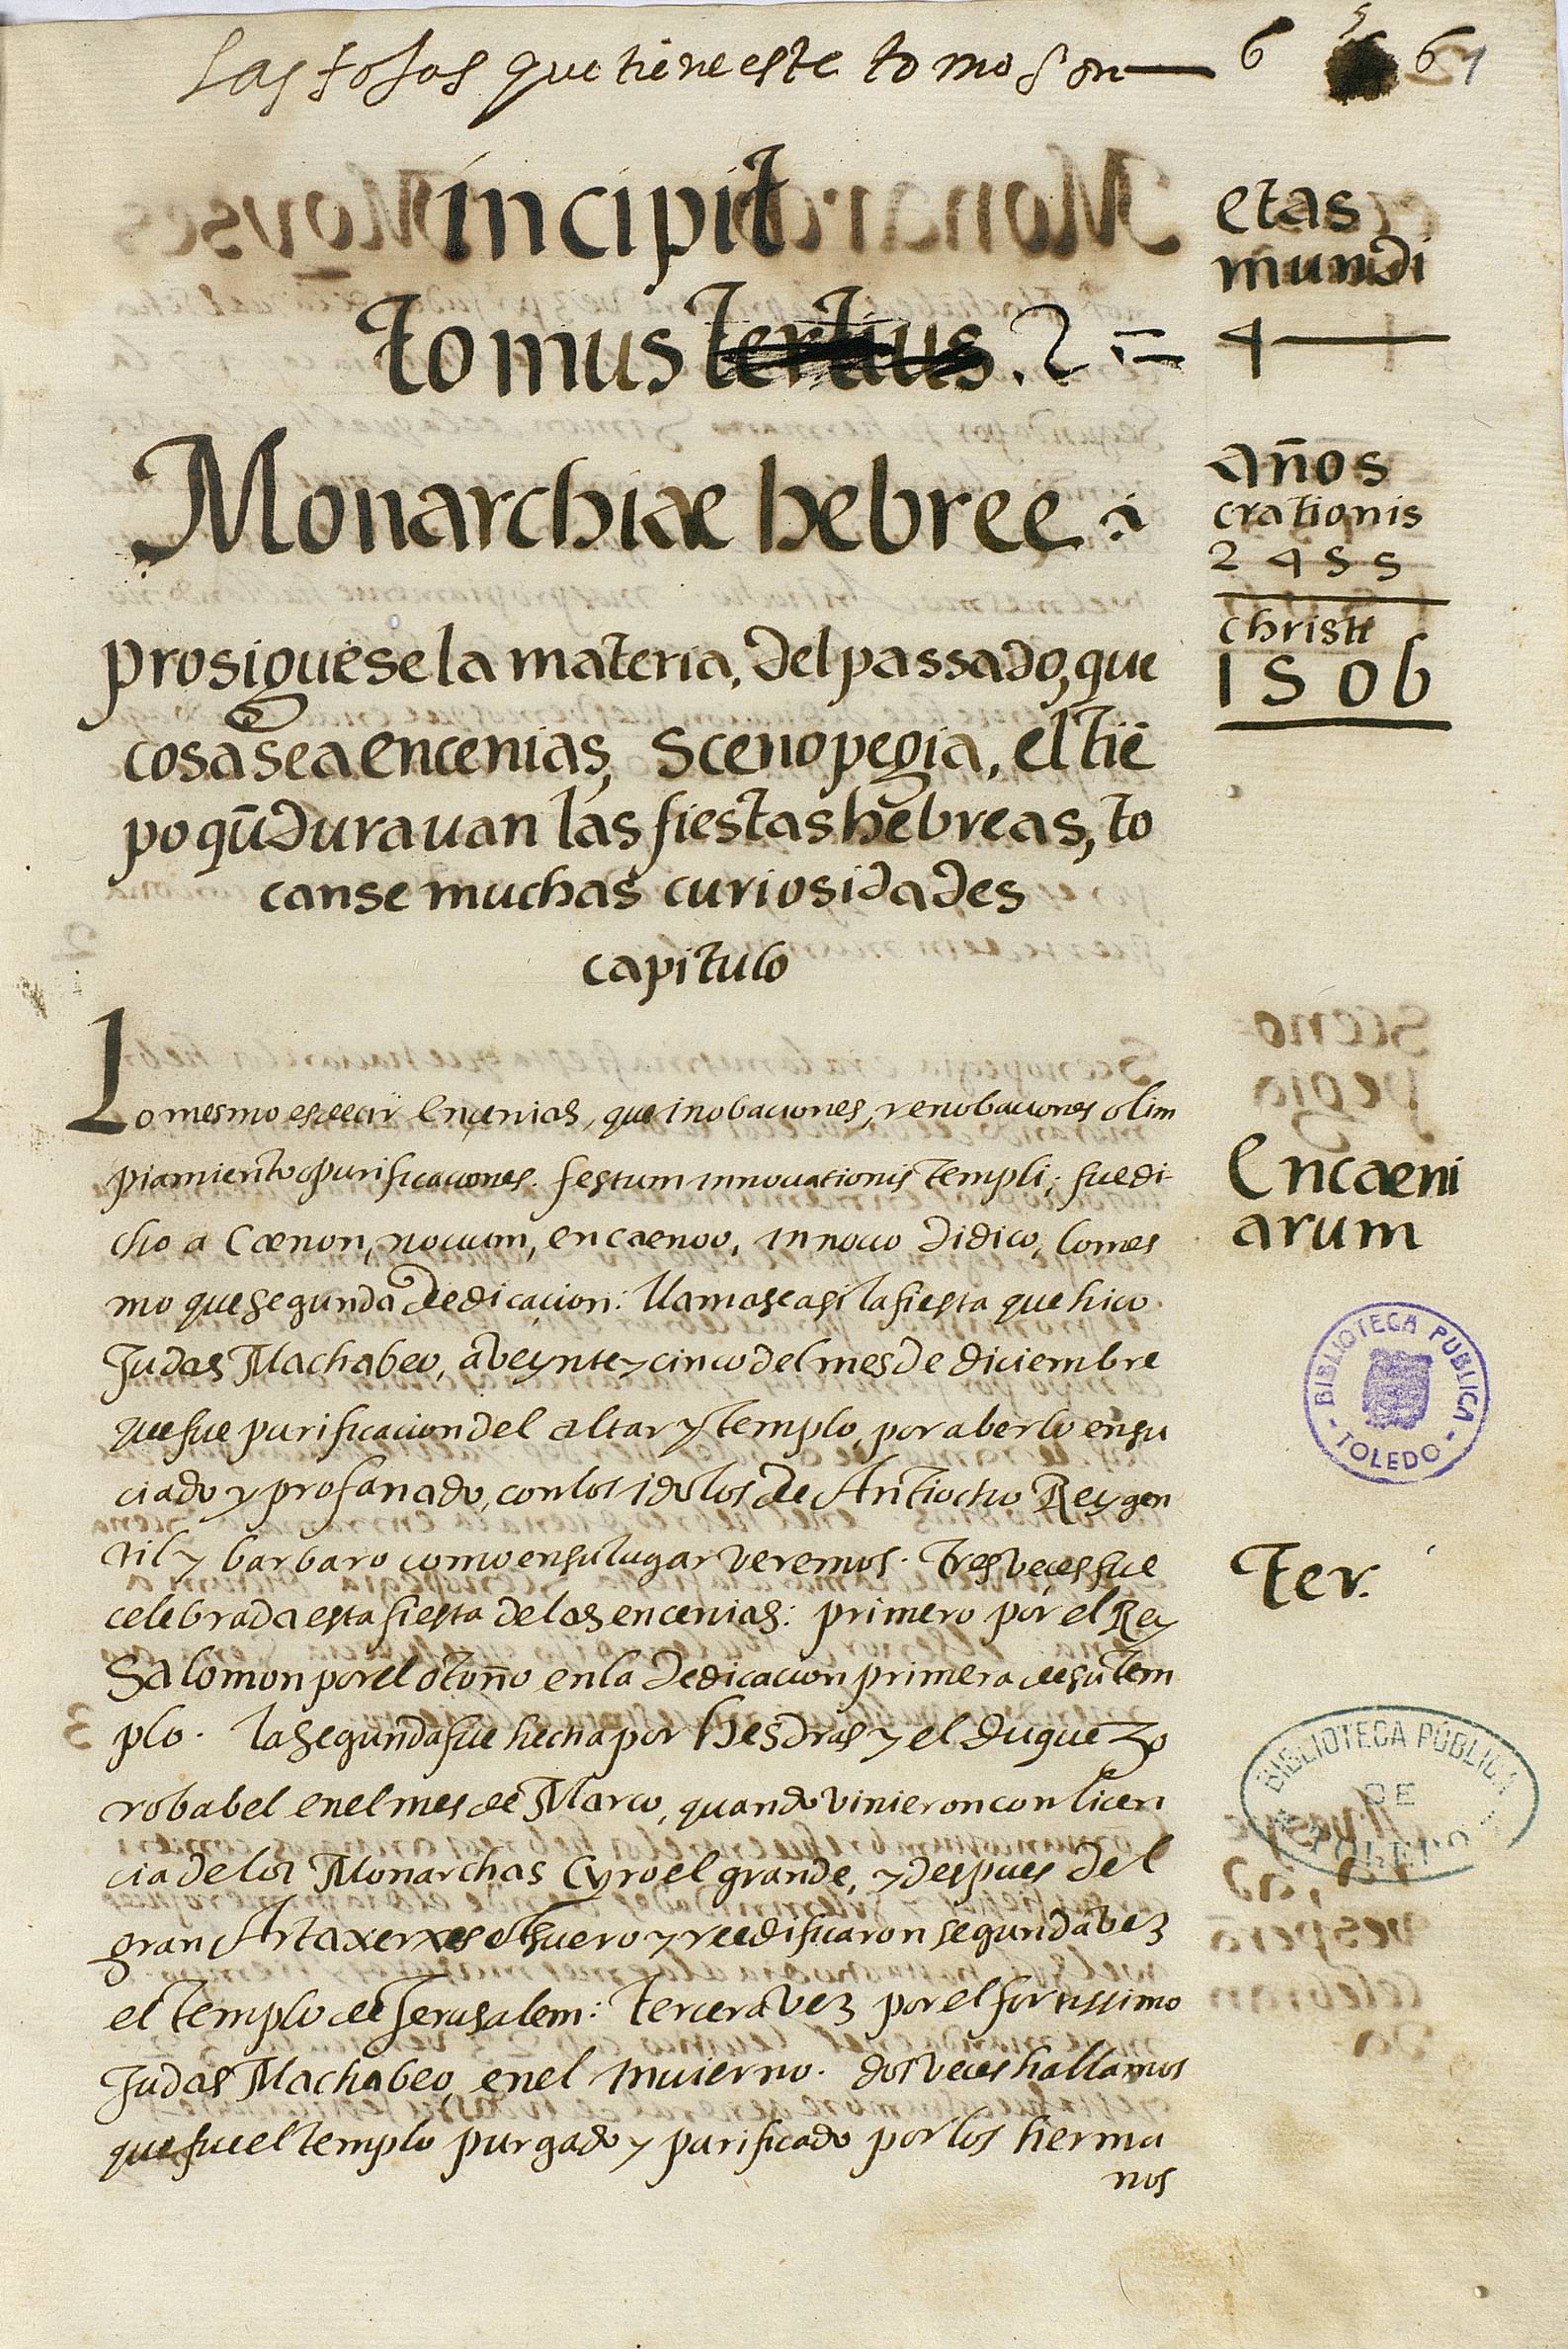 Las fojas que tiene este tomo son — 6 6 1
incipit
tomus tertius . 2 =
Monarchiae hebree
prosiguese la materia, del passado, que
cosa sea encenias, Scenopegia, el tiē
po qū durauan las fiestas hebreas, to
canse muchas curiosidades
capitulo
Lo mesmo es decir Encenias, que inobaciones, renobaciones o lim
piamiento o purificaciones. festum innouationis templi; fue di-
cho a Caenon, nouum, encaenoo, innouo didico, lo mes
mo que segunda dedicaçion: llamase asi la fiesta que hiço
Judas Machabeo, a beynte y cinco del mes de diciembre
que fue purificacion del altar y templo, por aberlo ensu
ciado y profanado, con los idolos de Antiocho Rey gen
til y barbaro como en su lugar veremos. tres veçes fue
celebrada esta fiesta de las encenias: primero por el Rey
Salomon por el otoño en la dedicacion primera de su tem
plo. la segunda fue hecha por Hesdras y el duque Zo
robabel en el mes de Março, quando vinieron con licen
cia de los Monarchas Cyro el grande, y despues del
gran Artaxerxes Asuero y reedificaron segunda vez
el templo de Jerusalem: tercera vez por el fortissimo
Judas Machabeo, en el inuierno. dos veces hallamos
que fue el templo purgado y purificado por los herma
nos
etas
mundi
4
años
crationis
2455
christi
1506
Encaeni
arum
BIBLIOTECA PUBLICA
- TOLEDO -
Ter.
BIBLIOTECA PÚBLICA
DE
TOLEDO